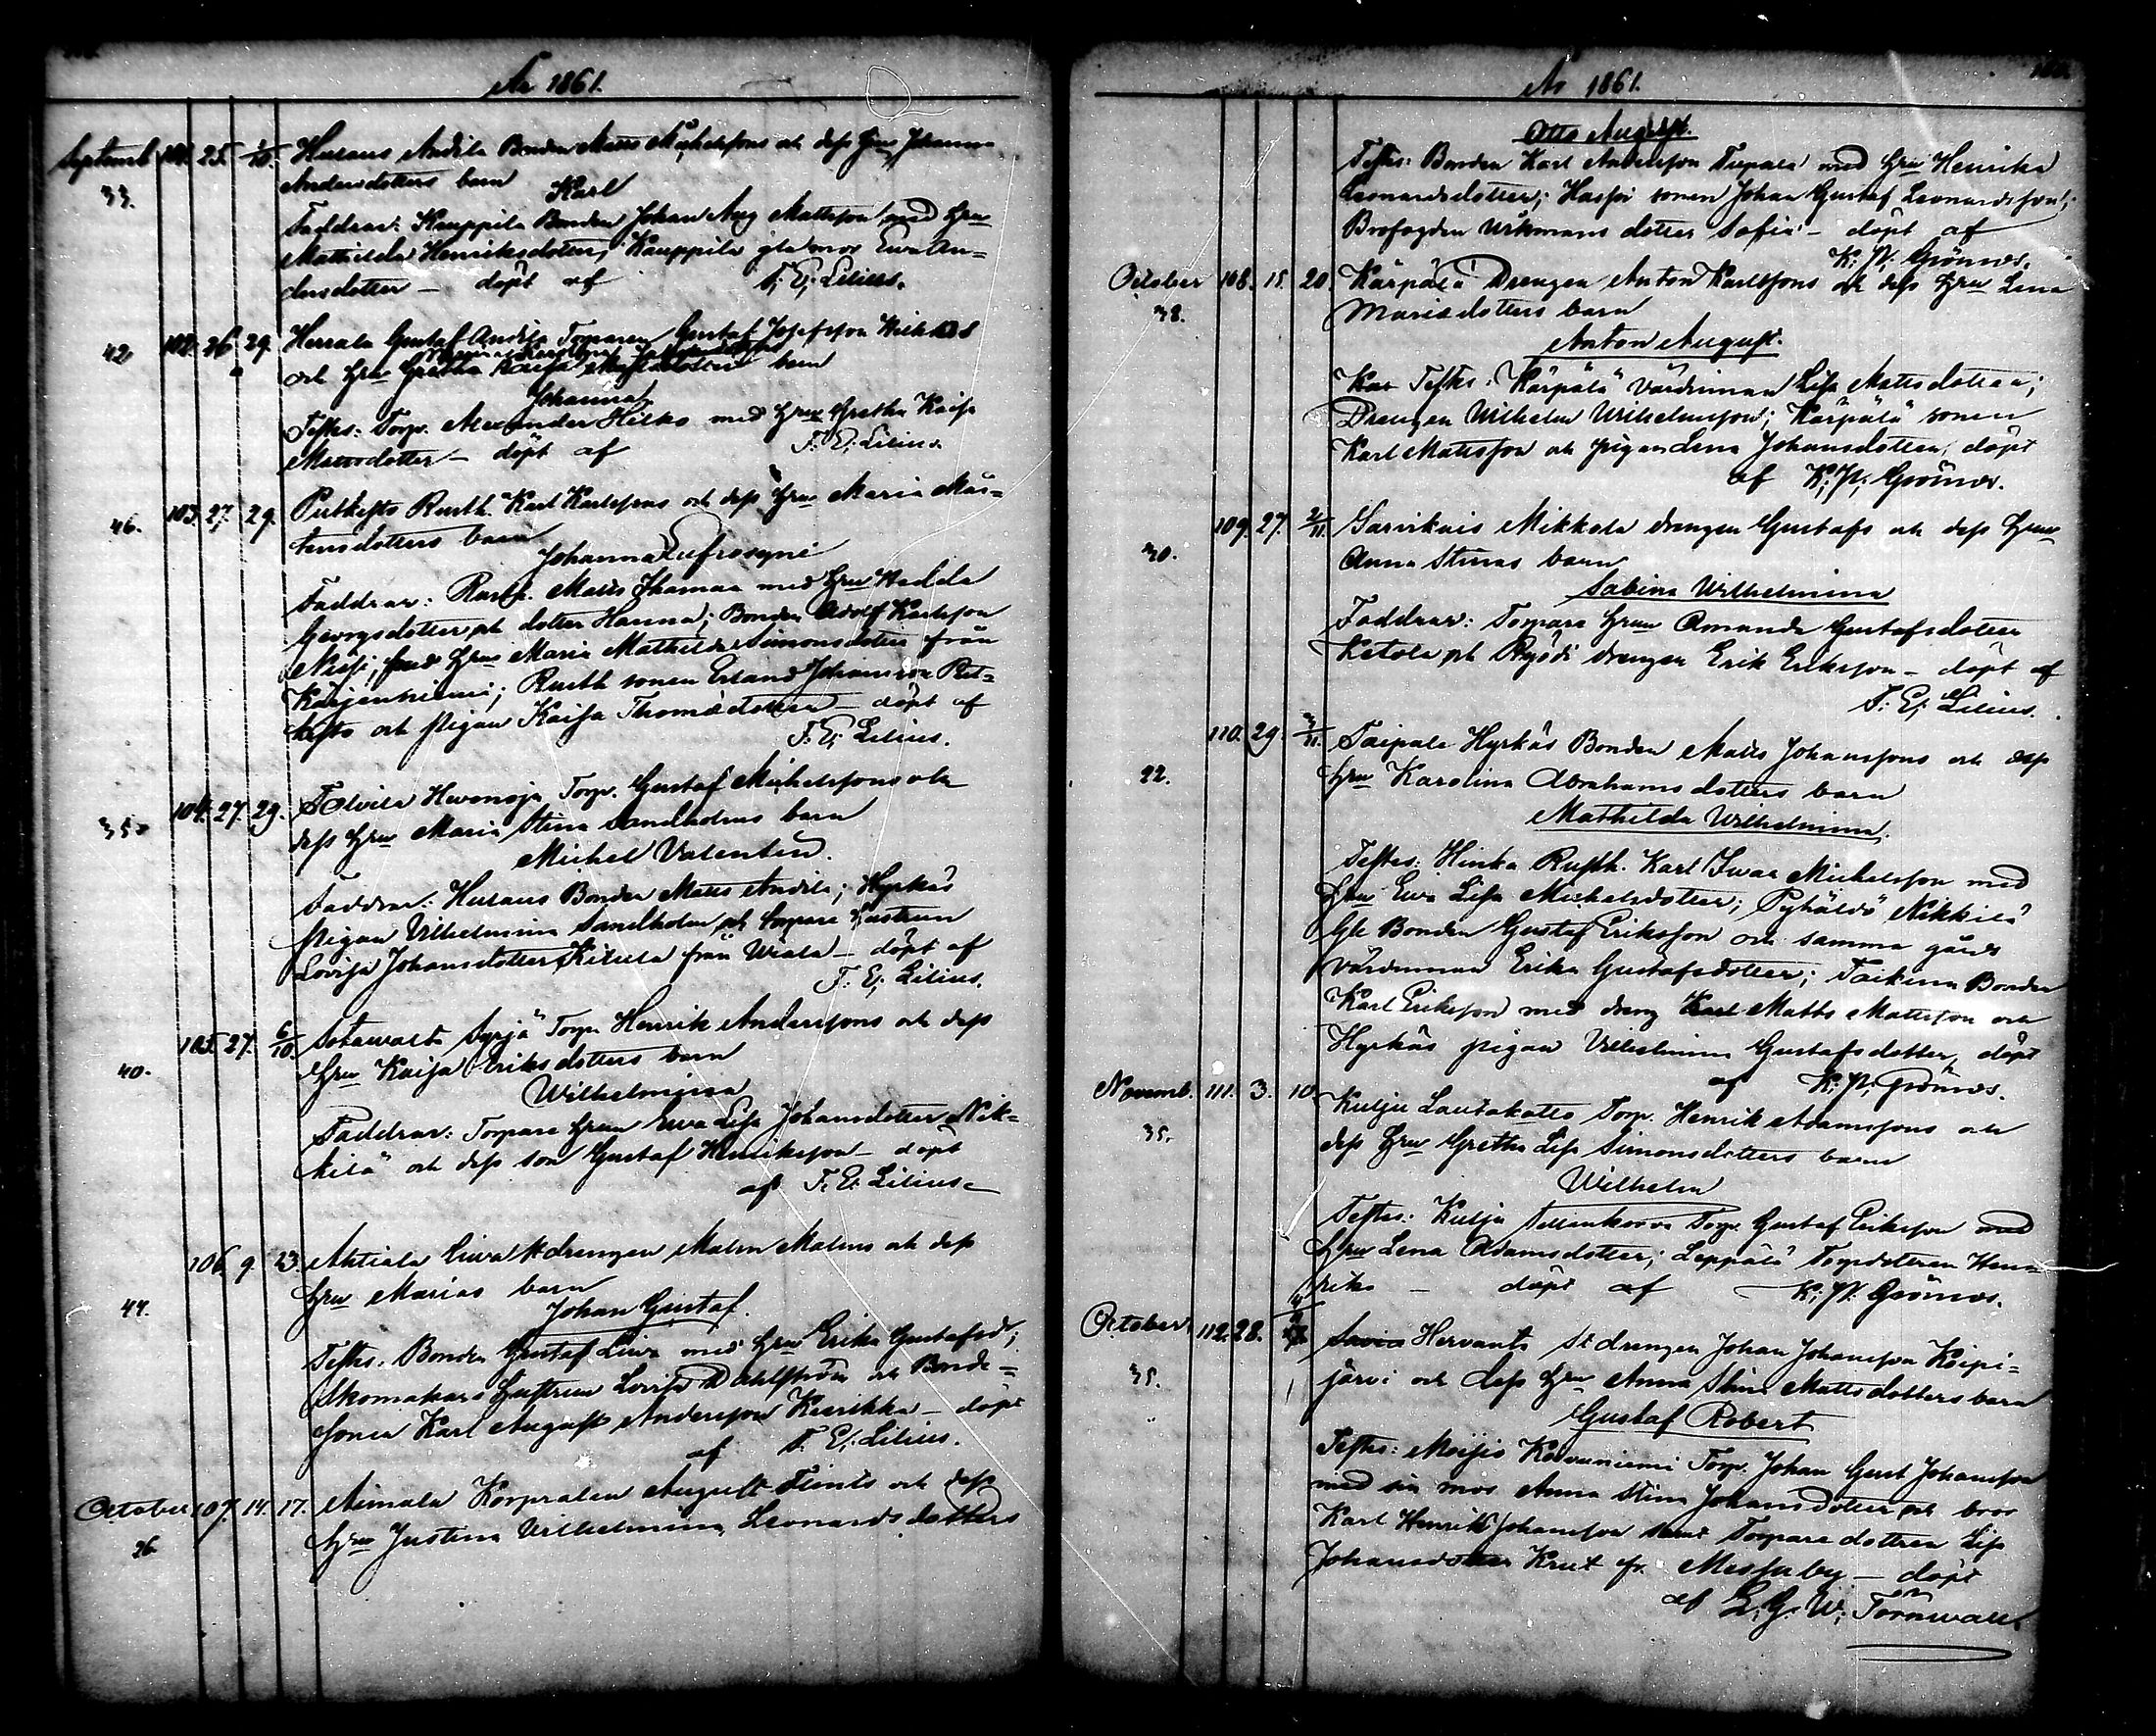 År 1861.
Septemb 101. 25. 1/10. Husaus Andila Bonden Matts Michelssons och dess Hru Johanna
33. Andersdotters barn
Karl
Faddrar: Kauppila Bonden Johan Aug Mattsson med Hru
Mathilda Henriksdotter; Kauppila gla mor Ewa An=
dersdotter – döpt af F. E. Lilius.
42 102. 26 29 Herrala Gustaf Andila Torparen Gustaf Josefsson
och Hru Gretha Kaisa barn
Johanna
Testes: Torp. Alexander Hilko med Hru Gretha Kaisa
Mattsdotter – döpt af F. E. Lilius.
46. 103. 27. 29. Putkisto Rusth. Karl Karlssons och dess Hru Maria Mår=
tensdotters barn
Johanna Eufrosyne
Faddrar: Rusth. Matts Thomaa med Hru Hedda
Georgsdotter och dotter Hanna; Bonden Adolf Karlsson
med Hru Maria Mathilda Simonsdotter från
Kärjenniemi; Rusth sonen Erland Johansson Put=
kisto och pigan Kaisa Thomædotter – döpt af
F. E. Lilius.
35. 104. 27. 29. Tolvila Hevonoja Torp. Gustaf Michelssons och
dess Hru Maria Stina Sandholms barn
Michel Valentin.
Faddrar: Husaus Bonden Matts Andila; Hyrkäs
pigan Vilhelmina Sandholm och torpare hustrun
Lovisa Johansdotter Kitula från Wiala – döpt af
F. E. Lilius.
105. 27. 6/10. Sotavalta Syrjä Torp. Henrik Anderssons och dess
40. Hru Kaisa Eriksdotters barn
Wilhelmina
Faddrar: Torpare hrun Ewa Lisa Johansdotter Nik=
kilä och dess son Gustaf Henriksson – döpt
af F. E. Lilius.
106. 9. 23. Ahtiala Liuva drengen Malm Malms och dess
44. Hru Marias barn
Johan Gustaf.
Testes. Bonden Gustaf Liuva med Hru Erika Gustafsd;
Skomakare hustrun Lovisa Dahlström och Bonde=
sonen Karl August Andersson Kuirikka – döpt
af F. E. Lilius.
October 107. 14. 17. Aimala Korpralen August Flinks och dess
26. Hru Justina Vilhelmina Leonardsdotters
År 1861.
Otto August.
Testes: Bonden Karl Andersson Turpala med Hru Henrika
Leonardsdotter; sonen Johan Gustaf Leonardsson;
Brofogden Wikmans dotter Sofia – döpt af
K. W. Grönros.
October 108. 15. 20. Kärpälä Drengen Anton Karlssons och dess Hru Lena
38. Mariædotters barn
Anton August.
Testes: Kärpälä värdinnan Lisa Mattsdotter;
Drengen Wilhelm Wilhelmsson; Kärpälä sonen
Karl Mattsson och pigan Lena Johansdotter, döpt
af K. W. Grönros.
109. 27. 2/11. Sarvikais Mikkola drengen Gustafs och dess Hru
30. Anna Stinas barn
Sabina Wilhelmina
Faddrar: Torpare hrun Amanda Gustafsdotter
Ketola och Röysö drengen Erik Eriksson – döpt af
F. E. Lilius.
110. 29. 3/11. Taipale Hyrkäs Bonden Matts Johanssons och dess
22. Hru Karolina Abrahamsdotters barn
Mathilda Wilhelmina.
Testes: Hinka Rusth. Karl Iwar Michelsson med
Hru Ewa Lisa Michelsdotter; Pyhäldö Nikkilä
Gle Bonden Gustaf Eriksson och samma gårds
värdinnan Erika Gustafsdotter; Taikina Bonden
Karl Eriksson med dreng Matts Mattsson och
Hyrkäs pigan Vilhelmina Gustafsdotter, döpt
af K. W. Grönros.
Novemb. 111. 3. 10. Kulju Lautakatto Torp. Henrik Adamssons och
35. dess Hru Gretha Lisa Simonsdotters barn
Wilhelm
Testes: Kulju Torp. Gustaf Eriksson med
Hru Lena Adamsdotter; Leppälä Torpdottren Hen=
rika – döpt af K. W. Grönros.
October 112. 28. Hervanta St drengen Johan Johansson Koipi=
35. järvi och dess Hru Anna Stina Mattsdotters barn
Gustaf Robert
Testes: Moijio Koivuniemi Torp. Johan Gust Johansson
med sin mor Anna Stina Johansdotter och bror
Karl Henrik Johansson samt Torpare dottren Lisa
Johansdotter Krut fr. Messuby – döpt
af L. G. W. Törnwall.